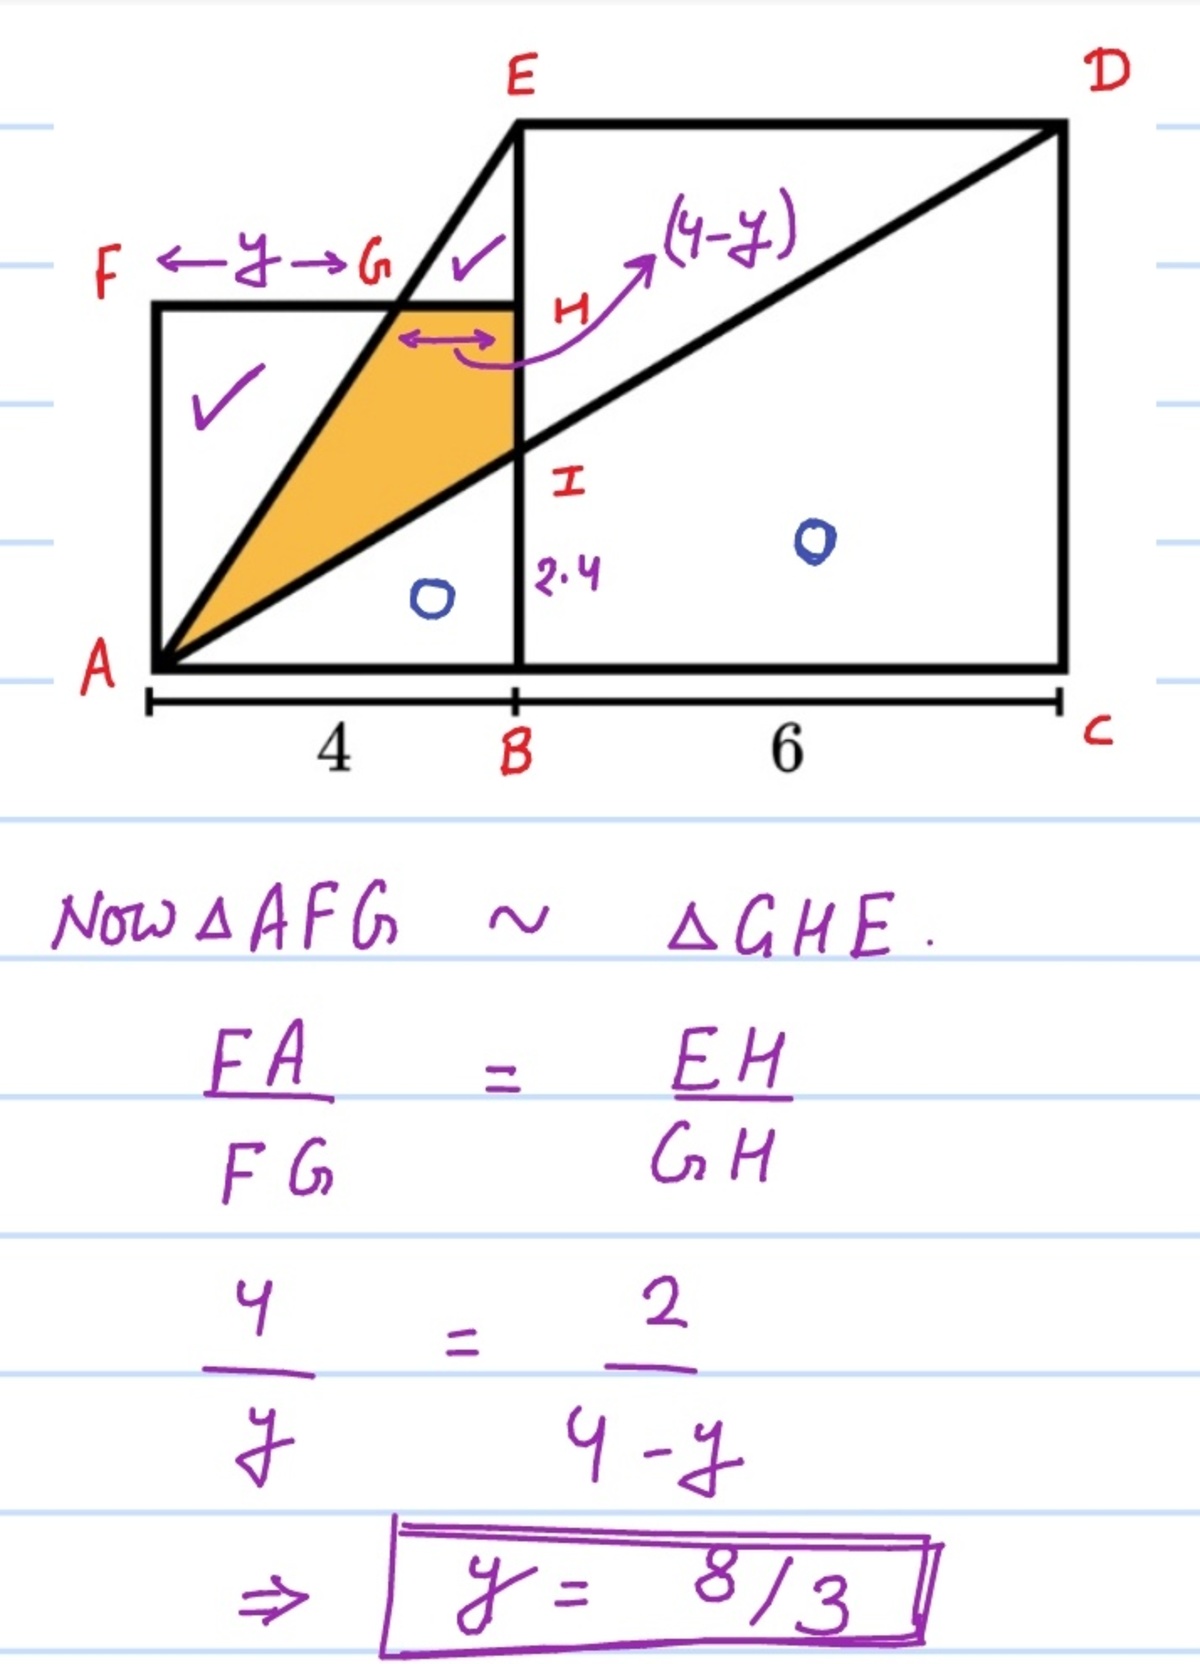 E D
F ←y→ G (4-y)
H
I
2.4
A
4 B 6 C
Now △AFG ~ △GHE.
FA = EH
FG GH
4 = 2
y 4-y
⇒ y = 8/3